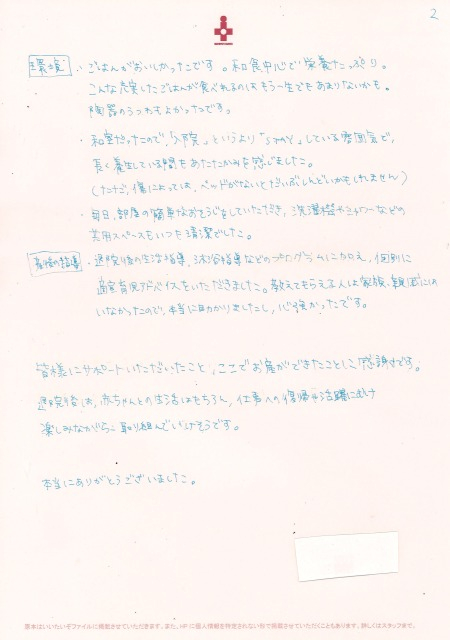 2
環境
・ごはんがおいしかったです。和食中心で栄養たっぷり。
こんな充実したごはんが食べれるのはもう一生でもあまりないかも。
陶器のうつわもよかったです。
・和室だったので、「入院」というより「  」している雰囲気で、
長く養生している間もあたたかみを感じました。
(ただ、傷によっては、ベッドがないとだいぶしんどいかもしれません)
・毎日、部屋の簡単なおそうじをしていただき、洗濯機やシャワーなどの
共用スペースもいつも清潔でした。
産後の指導
・退院後の生活指導、沐浴指導などのプログラムに加え、個別に
適宜育児アドバイスをいただきました。教えてもらえる人は家族、親戚には
いなかったので、本当に助かりましたし、心強かったです。
皆様にサポートいただいたこと、ここでお産ができたことに感謝です。
退院後は、赤ちゃんとの生活はもちろん、仕事への復帰や活躍に向け
楽しみながら取り組んでいけそうです。
本当にありがとうございました。
原本はいいたいぞファイルに掲載させていただきます。また、HPに個人情報を特定されない形で掲載させていただくこともあります。詳しくはスタッフまで。